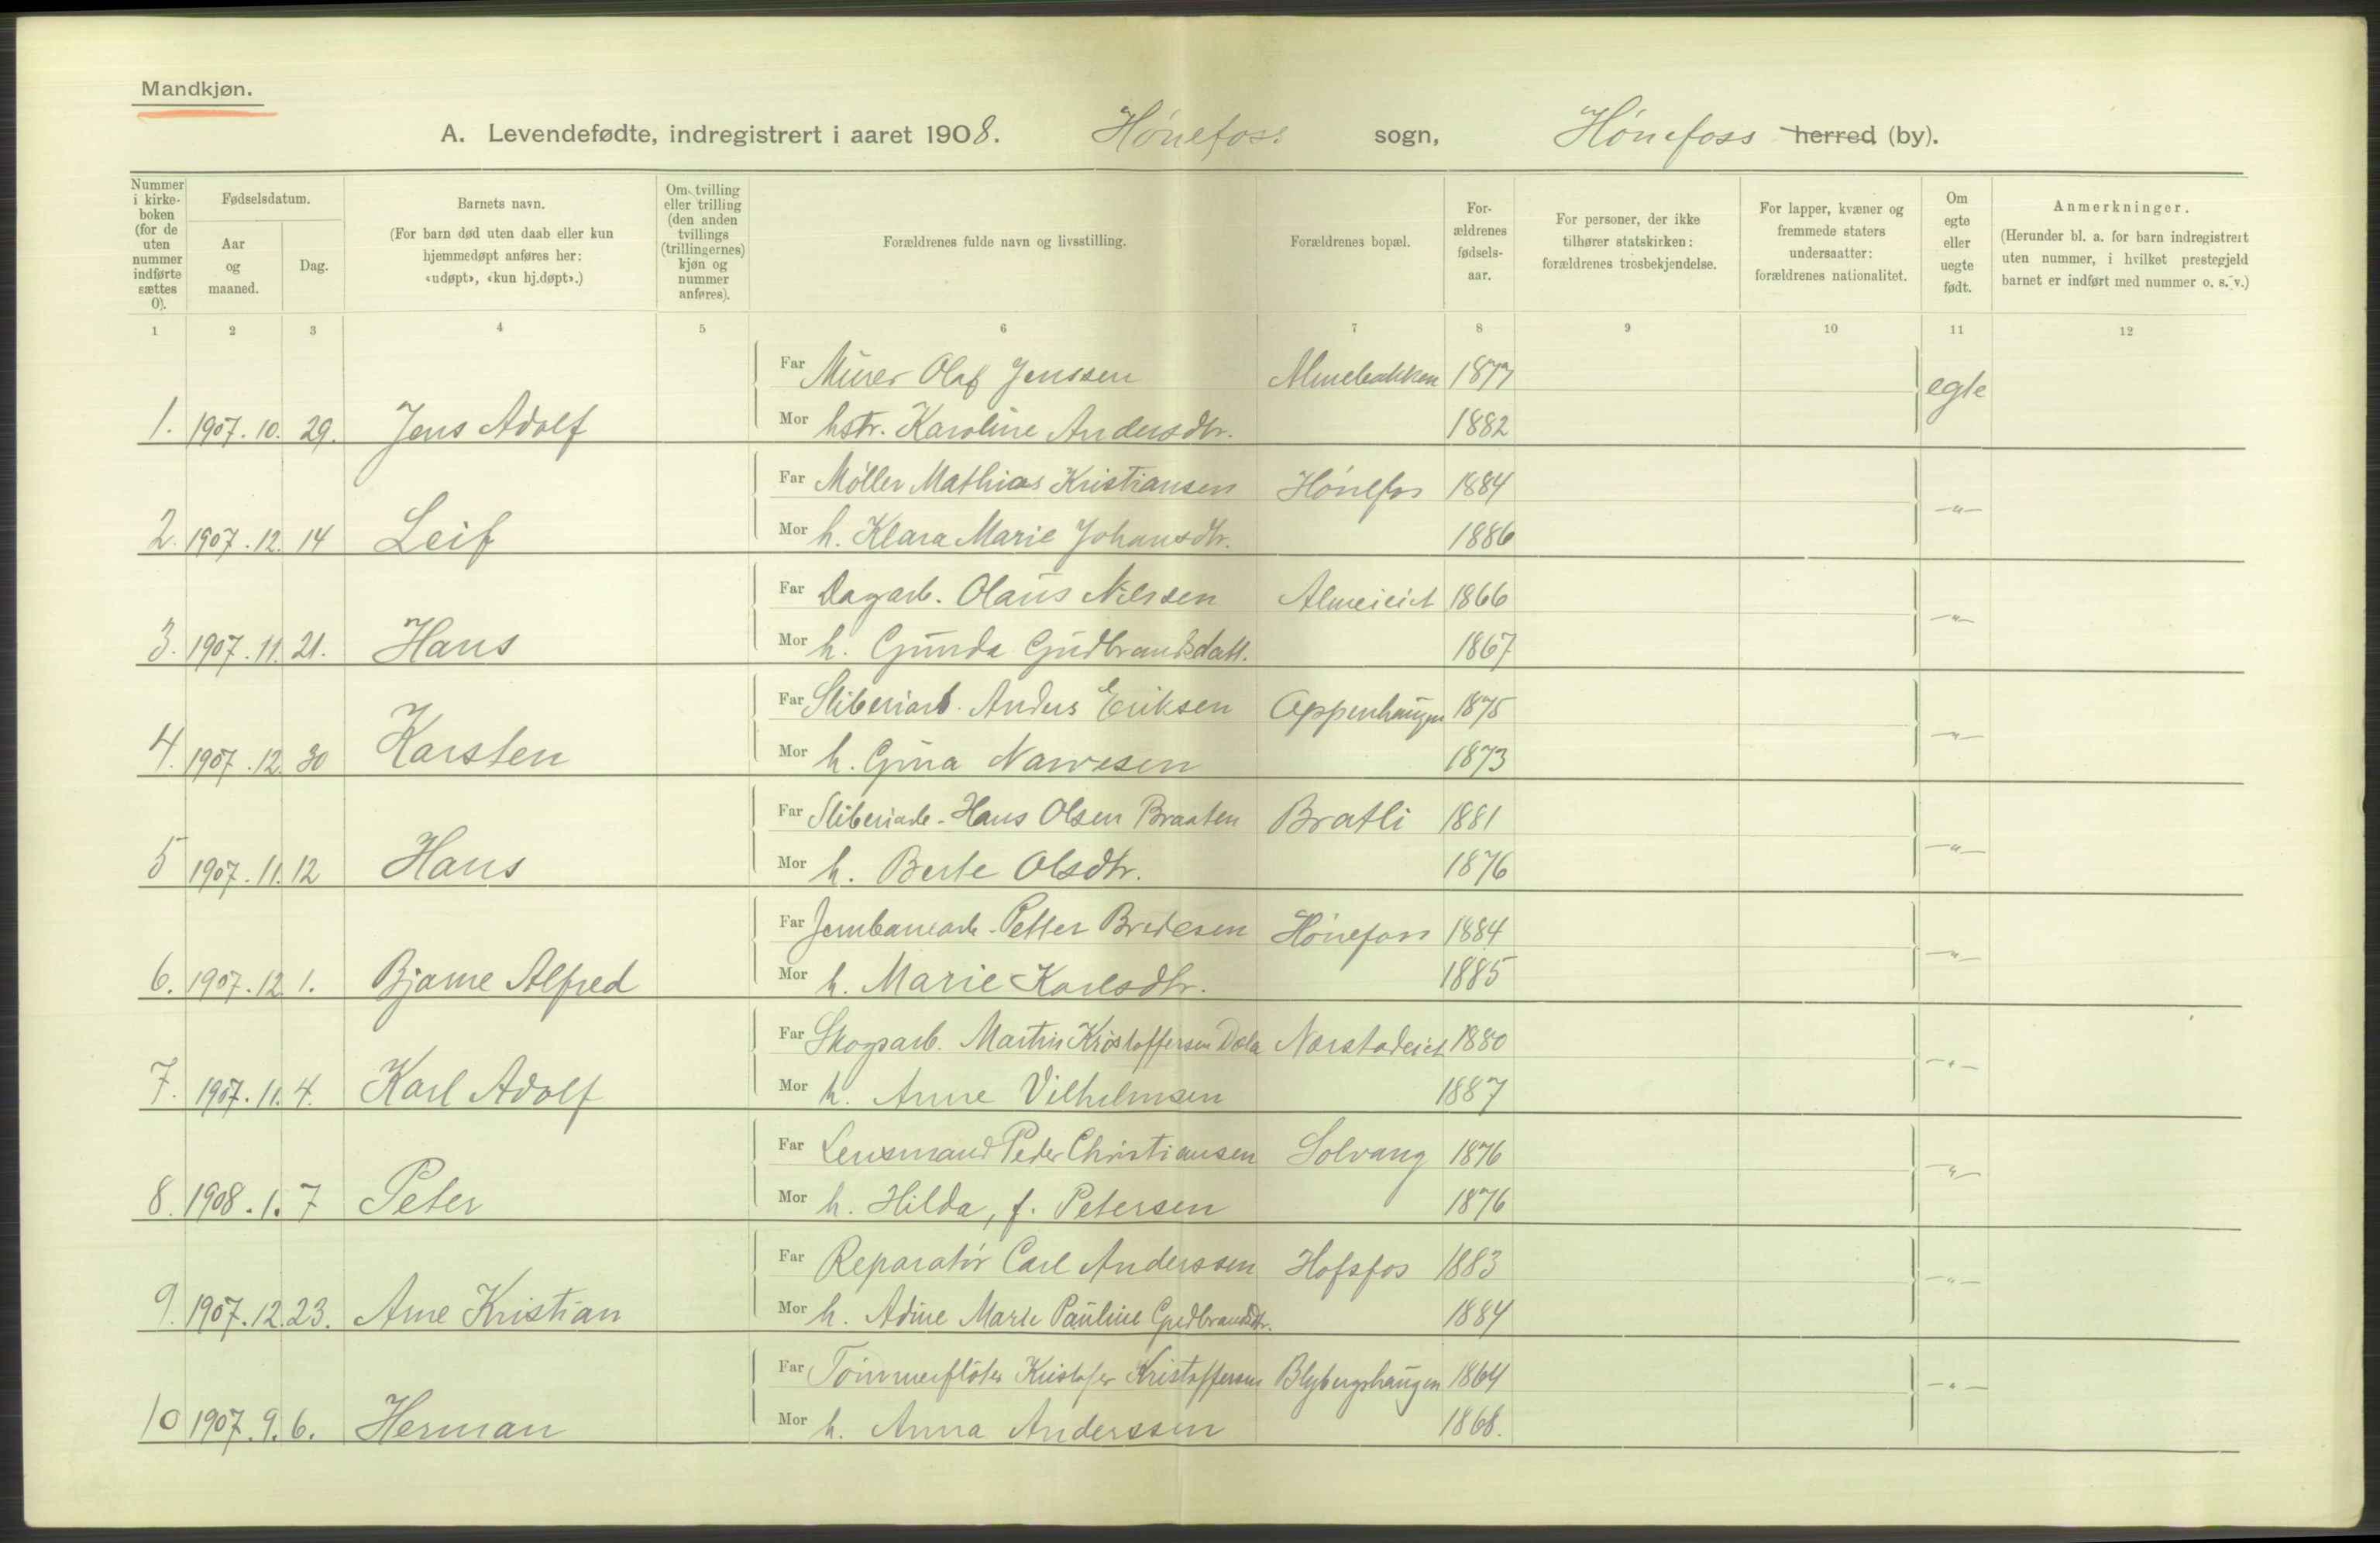 Mandkjøn.
A. Levendefødte, indregistrert i aaret 1908. Hønefoss sogn, Hønefoss herred (by).
Nummer i kirke-boken (for de uten nummer indførte sættes 0).
Fødselsdatum.
Aar og maaned.
Dag.
Barnets navn.
(For barn død uten daab eller kun hjemmedøpt anføres her: «udøpt», «kun hj.døpt».)
Om tvilling eller trilling (den anden tvillings (trillingernes) kjøn og nummer anføres).
Forældrenes fulde navn og livsstilling.
Forældrenes bopæl.
For-ældrenes fødsels-aar.
For personer, der ikke tilhører statskirken: forældrenes trosbekjendelse.
For lapper, kvæner og fremmede staters undersaatter: forældrenes nationalitet.
Om egte eller uegte født.
Anmerkninger.
(Herunder bl. a. for barn indregistrert uten nummer, i hvilket prestegjeld barnet er indført med nummer o. s. v.)
1 2 3 4 5 6 7 8 9 10 11 12
Far Murer Olaf Jenssen Almebakken 1877 egte
1. 1907. 10. 29. Jens Adolf Mor hstr. Karoline Andersdtr. 1882
Far Møller Mathias Kristiansen Hønefos 1884 -"-
2. 1907. 12. 14 Leif Mor h. Klara Marie Johansdtr. 1886
Far Dagarb. Olaus Nilssen 1866 -"-
3. 1907. 11. 21. Hans Mor h. Gunda Gudbrandsdatt. 1867
Far Sliberiarb. Anders Eriksen Oppenhaugen 1875 -"-
4. 1907. 12. 30 Karsten Mor h. Gina Narvesen 1873
Far Sliberiarb. Hans Olsen Braaten Bratli 1881 -"-
5 1907. 11. 12 Hans Mor h. Berte Olsdtr. 1876
Far Jernbanearb. Petter Bredesen Hønefoss 1884 -"-
6. 1907. 12. 1. Bjarne Alfred Mor h. Marie Karlsdtr. 1885
Far Skogsarb. Martin Kristoffersen Dæla 1880 -"-
7. 1907. 11. 4. Karl Adolf Mor h. Anne Vilhelmsen 1887
Far Lensmand Peder Christiansen Solvang 1876 -"-
8. 1908. 1. 7 Peter Mor h. Hilda, f. Petersen 1876
Far Reparatør Carl Anderssen Hofsfos 1883 -"-
9. 1907. 12. 23. Arne Kristian Mor h. Adine Marie Pauline Gudbrandsdtr. 1884
Far Tømmerfløter Kristofer Kristoffersen Blybergshaugen 1864 -"-
10 1907. 9. 6. Herman Mor h. Anna Anderssen 1868.